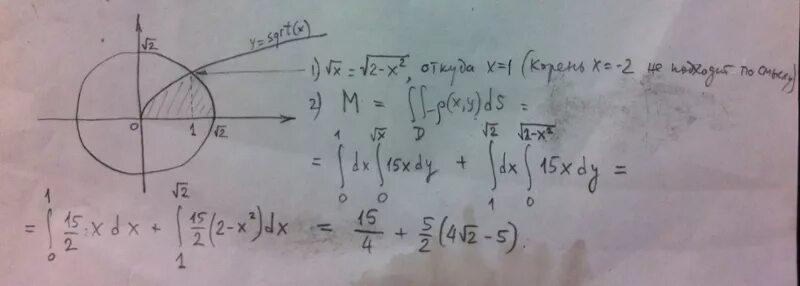 √2
y=sqrt(x)
0 1 √2
1) √x = √(2-x²), откуда x=1 (Корень x=-2 не подходит по смыслу)
2) M = ∬_D ρ(x,y)dS =
= ∫_0^1 dx ∫_0^{√x} 15x dy + ∫_1^{√2} dx ∫_0^{√(2-x²)} 15x dy =
= ∫_0^1 15/2 · x dx + ∫_1^{√2} 15/2 (2-x²)dx = 15/4 + 5/2 (4√2 - 5).